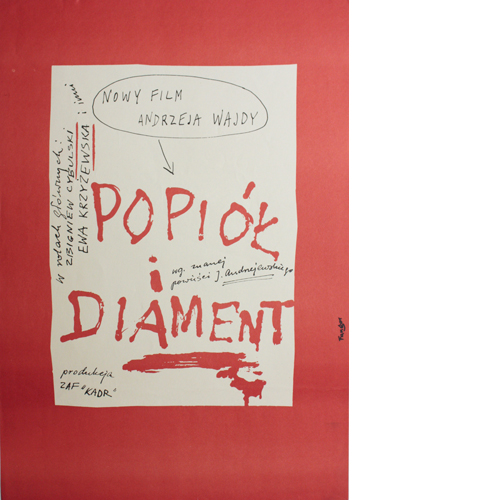 NOWY FILM
ANDRZEJA WAJDY
w rolach głównych:
ZBIGNIEW CYBULSKI
EWA KRZYŻEWSKA i inni
POPIÓŁ
i
wg. znanej
powieści J. Andrzejewskiego
DIAMENT
produkcja
ZAF "KADR"